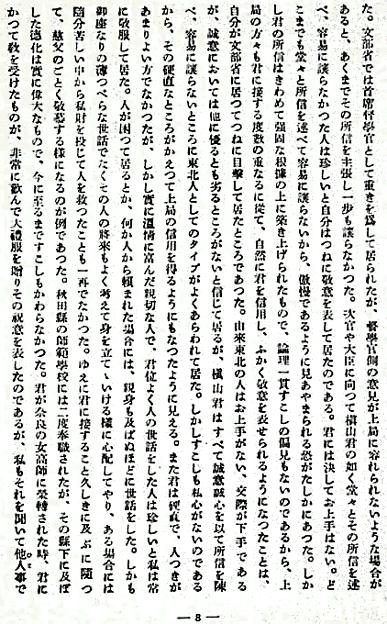 た。文部省では首席督學官として重きを爲して居られたが、督學官側の意見が上局に容れられないような場合が
あると、あくまでその所信を主張し一歩も讓らなかつた。次官や大臣に向つて横山君の如く堂々とその所信を述
べ、容易に讓らなかつた人は珍しいと自分はつねに敬意を表して居たのである。君には決してお上手はない。ど
こまでも堂々と所信を述べて容易に讓らないから、傲慢であるように見あやまられる恐がたしかにあつた。しか
し君の所信はきわめて强固な根據の上に築き上げられたもので、論理一貫すこしの偏見もないのであるから、上
局の方々も君に接する度數の重なるに從て、自然に君を信用し、ふかく敬意を表せられるようになつたことは、
自分が文部省に居てつねに目擊して居たところであつた。由來東北の人はお上手がない、交際が下手である
が、誠意においては他に優るとも劣るところがないと信じて居るが、横山君はすべて誠意誠心を以て所信を陳
べ、容易に讓らないところに東北人としてのタイプがよくあらわれて居た。しかしすこしも私心がないのである
から、その硬直なところがかえつて上局の信用を得るようにもなつたように見える。また君は硬直で、人つきが
あまりよい方でなかつたが、しかし實に溫情に富んだ親切な人で、君位よく人の世話をした人は珍しいと私は常
に敬服して居た。人が困つて居るとか、何か人から賴まれた場合には、親身も及ばぬほどに世話をした。しかも
御座なりの薄つぺらな世話でなくその人の將來もよく考えて身を立てゝいける樣に心配してやり、ある場合には
隨分苦しい中から私財を投じて人を救つたことも一再でなかつた。ゆえに君に接すること久しきに及ぶに隨つ
て、慈父のごとく敬慕する樣になるのが例であつた。秋田縣の師範學校には二度奉職されたが、その縣下に及ぼ
した德化は實に偉大なもので、今に至るまですこしもかわらなかつた。君が奈良の女高師に榮轉された時、君に
かつて敎を受けたものが、非常に歡んで大禮服を贈りその祝意を表したのであるが、私もそれを聞いて他人事で
— 8 —